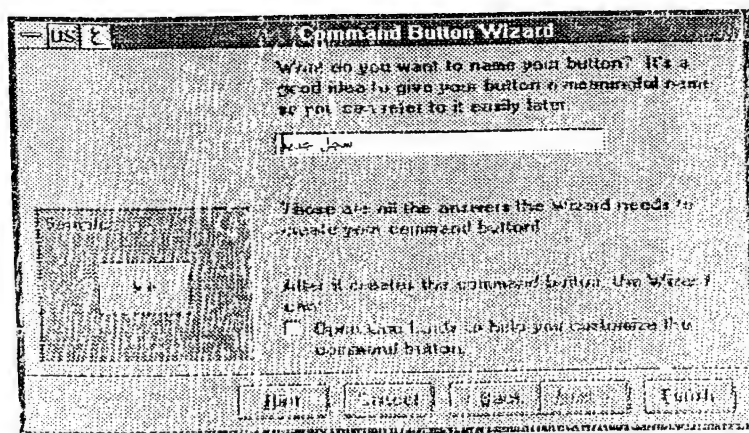 US ع Command Button Wizard
What do you want to name your button? It's a
good idea to give your button a meaningful name
so you can refer to it easily later.
سجل جديد
Those are all the answers the Wizard needs to
create your command button!
Sample:
After it creates the command button, the Wizard
can:
Open Cue Cards to help you customize the
command button.
Hint Cancel < Back Next > Finish